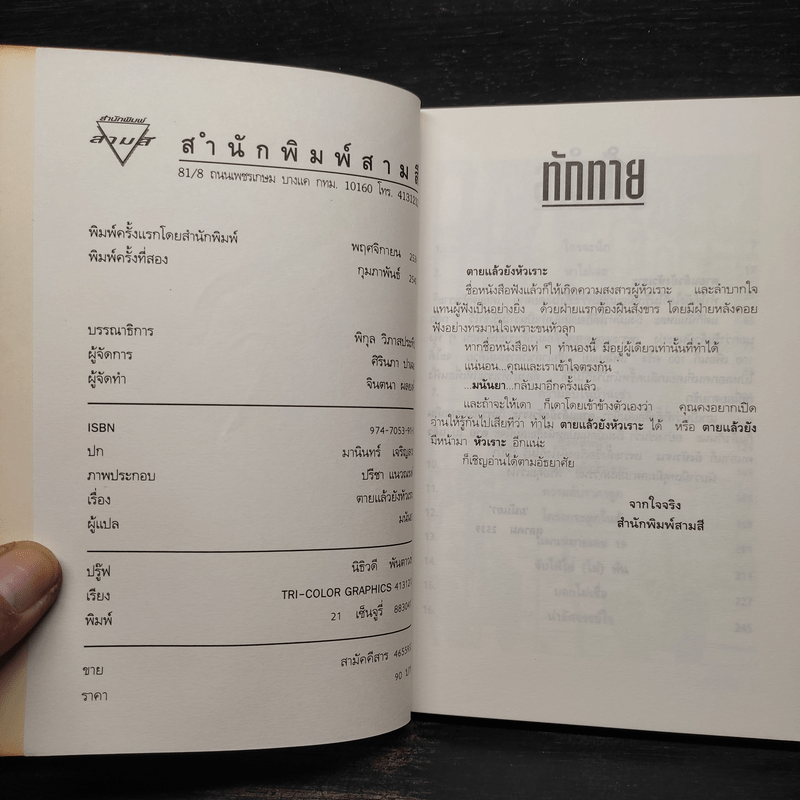 สำนักพิมพ์
สามสี
สำนักพิมพ์สามสี
81/8 ถนนเพชรเกษม บางแค กทม. 10160 โทร.
พิมพ์ครั้งแรกโดยสำนักพิมพ์ พฤศจิกายน
พิมพ์ครั้งที่สอง กุมภาพันธ์
บรรณาธิการ พิกุล
ผู้จัดการ ศิรินภา
ผู้จัดทำ จินตนา
ISBN 974-7053-91-
ปก มานินทร์ เจริญ
ภาพประกอบ ปรีชา
เรื่อง ตายแล้วยังหัวเราะ
ผู้แปล มนันยา
ปรู๊ฟ นิธิวดี
เรียง TRI-COLOR GRAPHICS
พิมพ์ 21 เซ็นจูรี่
ขาย สามัคคีสาร
ราคา 90
ทักทาย
ตายแล้วยังหัวเราะ
ชื่อหนังสือฟังแล้วก็ให้เกิดความสงสารผู้หัวเราะ และลำบากใจ
แทนผู้ฟังเป็นอย่างยิ่ง ด้วยฝ่ายแรกต้องฝืนสังขาร โดยมีฝ่ายหลังคอย
ฟังอย่างทรมานใจเพราะขนหัวลุก
หากชื่อหนังสือเท่ ๆ ทำนองนี้ มีอยู่ผู้เดียวเท่านั้นที่ทำได้
แน่นอน...คุณและเราเข้าใจตรงกัน
...มนันยา...กลับมาอีกครั้งแล้ว
และถ้าจะให้เดา ก็เดาโดยเข้าข้างตัวเองว่า คุณคงอยากเปิด
อ่านให้รู้กันไปเสียทีว่า ทำไม ตายแล้วยังหัวเราะ ได้ หรือ ตายแล้วยัง
มีหน้ามา หัวเราะ อีกแน่ะ
ก็เชิญอ่านได้ตามอัธยาศัย
จากใจจริง
สำนักพิมพ์สามสี